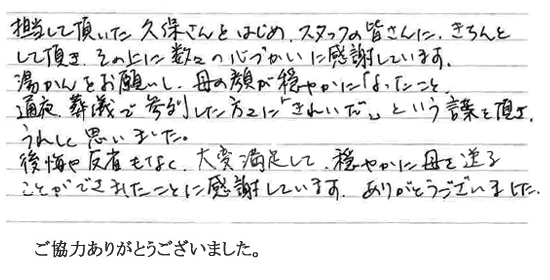 担当して頂いた久保さんをはじめ、スタッフの皆さんに、きちんと
して頂き、その上に数々の心づかいに感謝しています。
湯かんをお願いし、母の顔が穏やかになったこと、
通夜、葬儀で参列した方々に「きれいだ」という言葉を頂き、
うれしく思いました。
後悔や反省もなく、大変満足して、穏やかに母を送る
ことができましたことに感謝しています。ありがとうございました。
ご協力ありがとうございました。